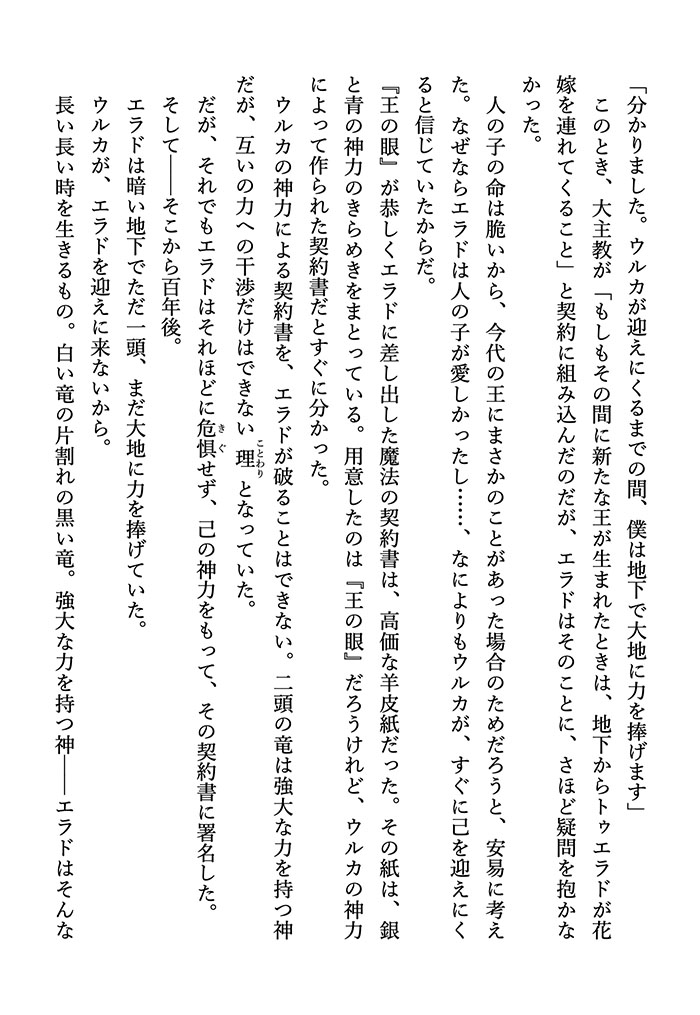 「分かりました。ウルカが迎えにくるまでの間、僕は地下で大地に力を捧げます」
　このとき、大主教が「もしもその間に新たな王が生まれたときは、地下からトゥエラドが花
嫁を連れてくること」と契約に組み込んだのだが、エラドはそのことに、さほど疑問を抱かな
かった。
　人の子の命は脆いから、今代の王にまさかのことがあった場合のためだろうと、安易に考え
た。なぜならエラドは人の子が愛しかったし……、なによりもウルカが、すぐに己を迎えにく
ると信じていたからだ。
『王の眼』が恭しくエラドに差し出した魔法の契約書は、高価な羊皮紙だった。その紙は、銀
と青の神力のきらめきをまとっている。用意したのは『王の眼』だろうけれど、ウルカの神力
によって作られた契約書だとすぐに分かった。
　ウルカの神力による契約書を、エラドが破ることはできない。二頭の竜は強大な力を持つ神
だが、互いの力への干渉だけはできない理ことわりとなっていた。
　だが、それでもエラドはそれほどに危惧きぐせず、己の神力をもって、その契約書に署名した。
そして――そこから百年後。
　エラドは暗い地下でただ一頭、まだ大地に力を捧げていた。
ウルカが、エラドを迎えに来ないから。
長い長い時を生きるもの。白い竜の片割れの黒い竜。強大な力を持つ神――エラドはそんな